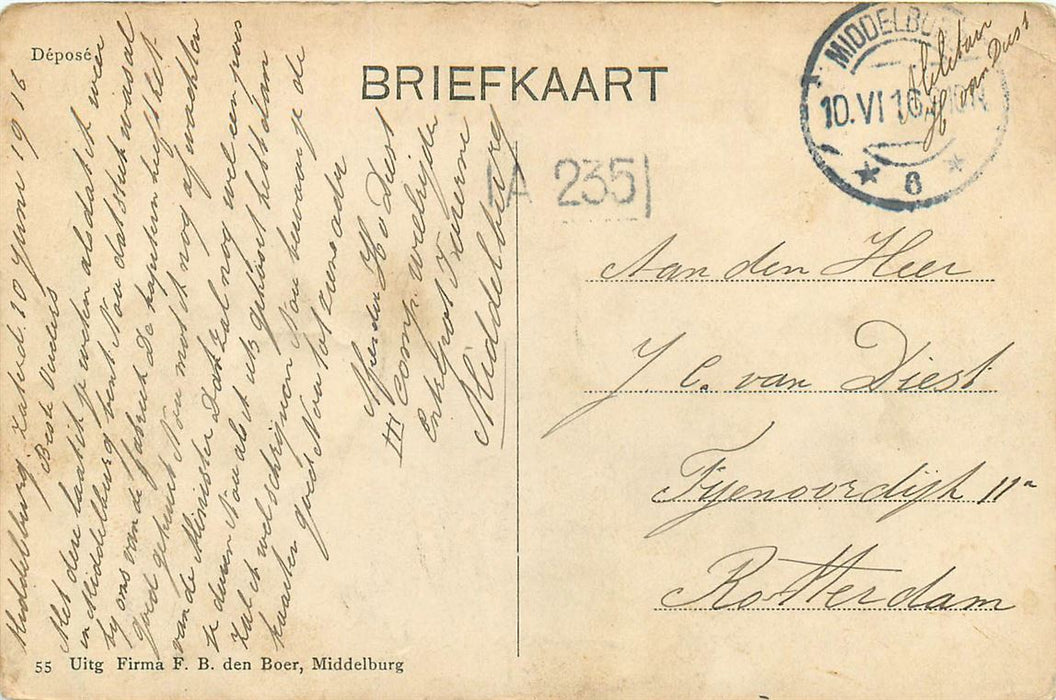 Déposé
BRIEFKAART
MIDDELBU
10.VI 16
6
Militair
H van Diest
A 235
Middelburg Zaterd. 10 Juni 1916
Beste Ouders
Met deze laat ik je weten als dat ik weer
in Middelburg bent. Nou dat stuk was al
bij ons van de fabriek De kapitein heeft het
goed gekeurt Nou most ik nog afwachten
van de Minister Dat zal nog wel een paar
duren Nou als ik iets gehoort heb dan
zal ik wel schrijven Nou bewaar je de
kaarten goed Nou tot ziens ader
Afzender H v Diest
III Comp. wielrijder
Enkhoot Kazerne
Middelburg
Aan den Heer
J. C. van Diest
Fijenoordijk 11a
Rotterdam
55 Uitg Firma F. B. den Boer, Middelburg